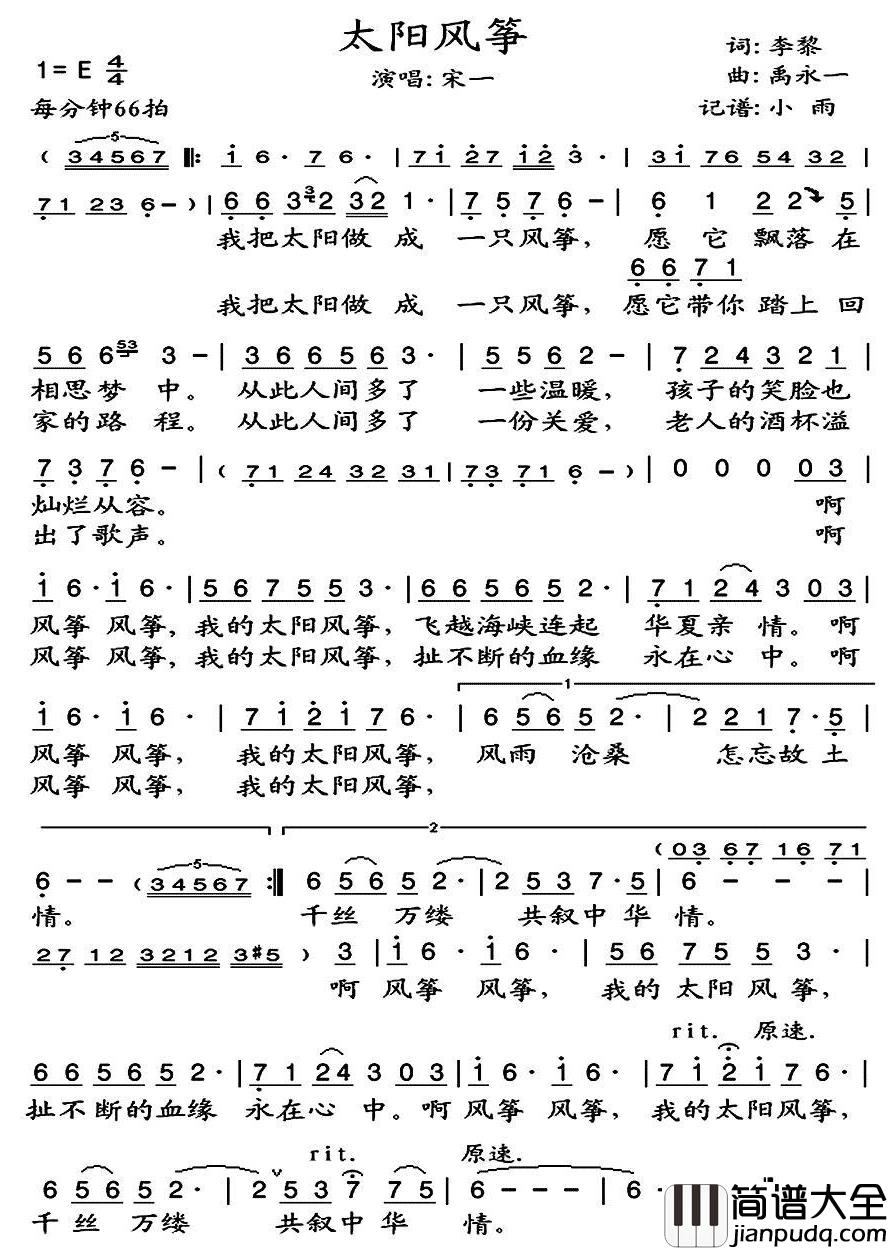 太阳风筝
1=E 4/4
演唱:宋一
词:李黎
曲:禹永一
每分钟66拍
记谱:小雨
(34567 ‖: i 6· 7 6· | 7i 27 i2 3· | 3i 76 54 32 |
71 23 6 -) | 6 6 3 3 2 32 1· | 7 5 7 6 - | 6 1 2 2 5 |
我把太阳做 成 一只风筝, 愿 它 飘落 在
6 6 7 1
我把太阳做 成 一只风筝, 愿它带你 踏上 回
5 6 6 53 3 - | 3 6 6 5 6 3· | 5 5 6 2 - | 7 2 4 3 2 1 |
相思梦 中。 从此人间多了 一些温暖, 孩子的笑脸也
家的路 程。 从此人间多了 一份关爱, 老人的酒杯溢
7 3 7 6 - | (71 24 32 31 | 73 71 6 -) | 0 0 0 0 3 |
灿烂从容。 啊
出了歌声。 啊
i 6· i 6· | 5 6 7 5 5 3· | 6 6 5 6 5 2· | 7 1 2 4 3 0 3 |
风筝 风筝, 我的太阳风筝, 飞越海峡连起 华夏亲 情。啊
风筝 风筝, 我的太阳风筝, 扯不断的血缘 永在心 中。啊
1
i 6· i 6· | 7 i 2 i 7 6· | 6 5 6 5 2· | 2 2 1 7· 5 |
风筝 风筝, 我的太阳风筝, 风雨 沧桑 怎忘故 土
风筝 风筝, 我的太阳风筝,
2
(03 67 16 71
6 - - (34567 :‖ 6 5 6 5 2· | 2 5 3 7· 5 | 6 - - - |
情。 千丝 万缕 共叙中 华 情。
27 12 3212 3#5 ) 3 | i 6· i 6· | 5 6 7 5 5 3· |
啊 风筝 风筝, 我的 太阳 风 筝,
rit. 原速.
6 6 5 6 5 2· | 7 1 2 4 3 0 3 | i 6· i 6· | 7 i 2 i 7 6· |
扯不断的血缘 永在心 中。啊 风筝 风筝, 我的太阳风筝,
rit. 原速.
6 5 6 5 2· | 2 5 3 7 7 5 | 6 - - - | 6·
千 丝 万缕 共叙中 华 情。
简谱大全
jianpudq.com